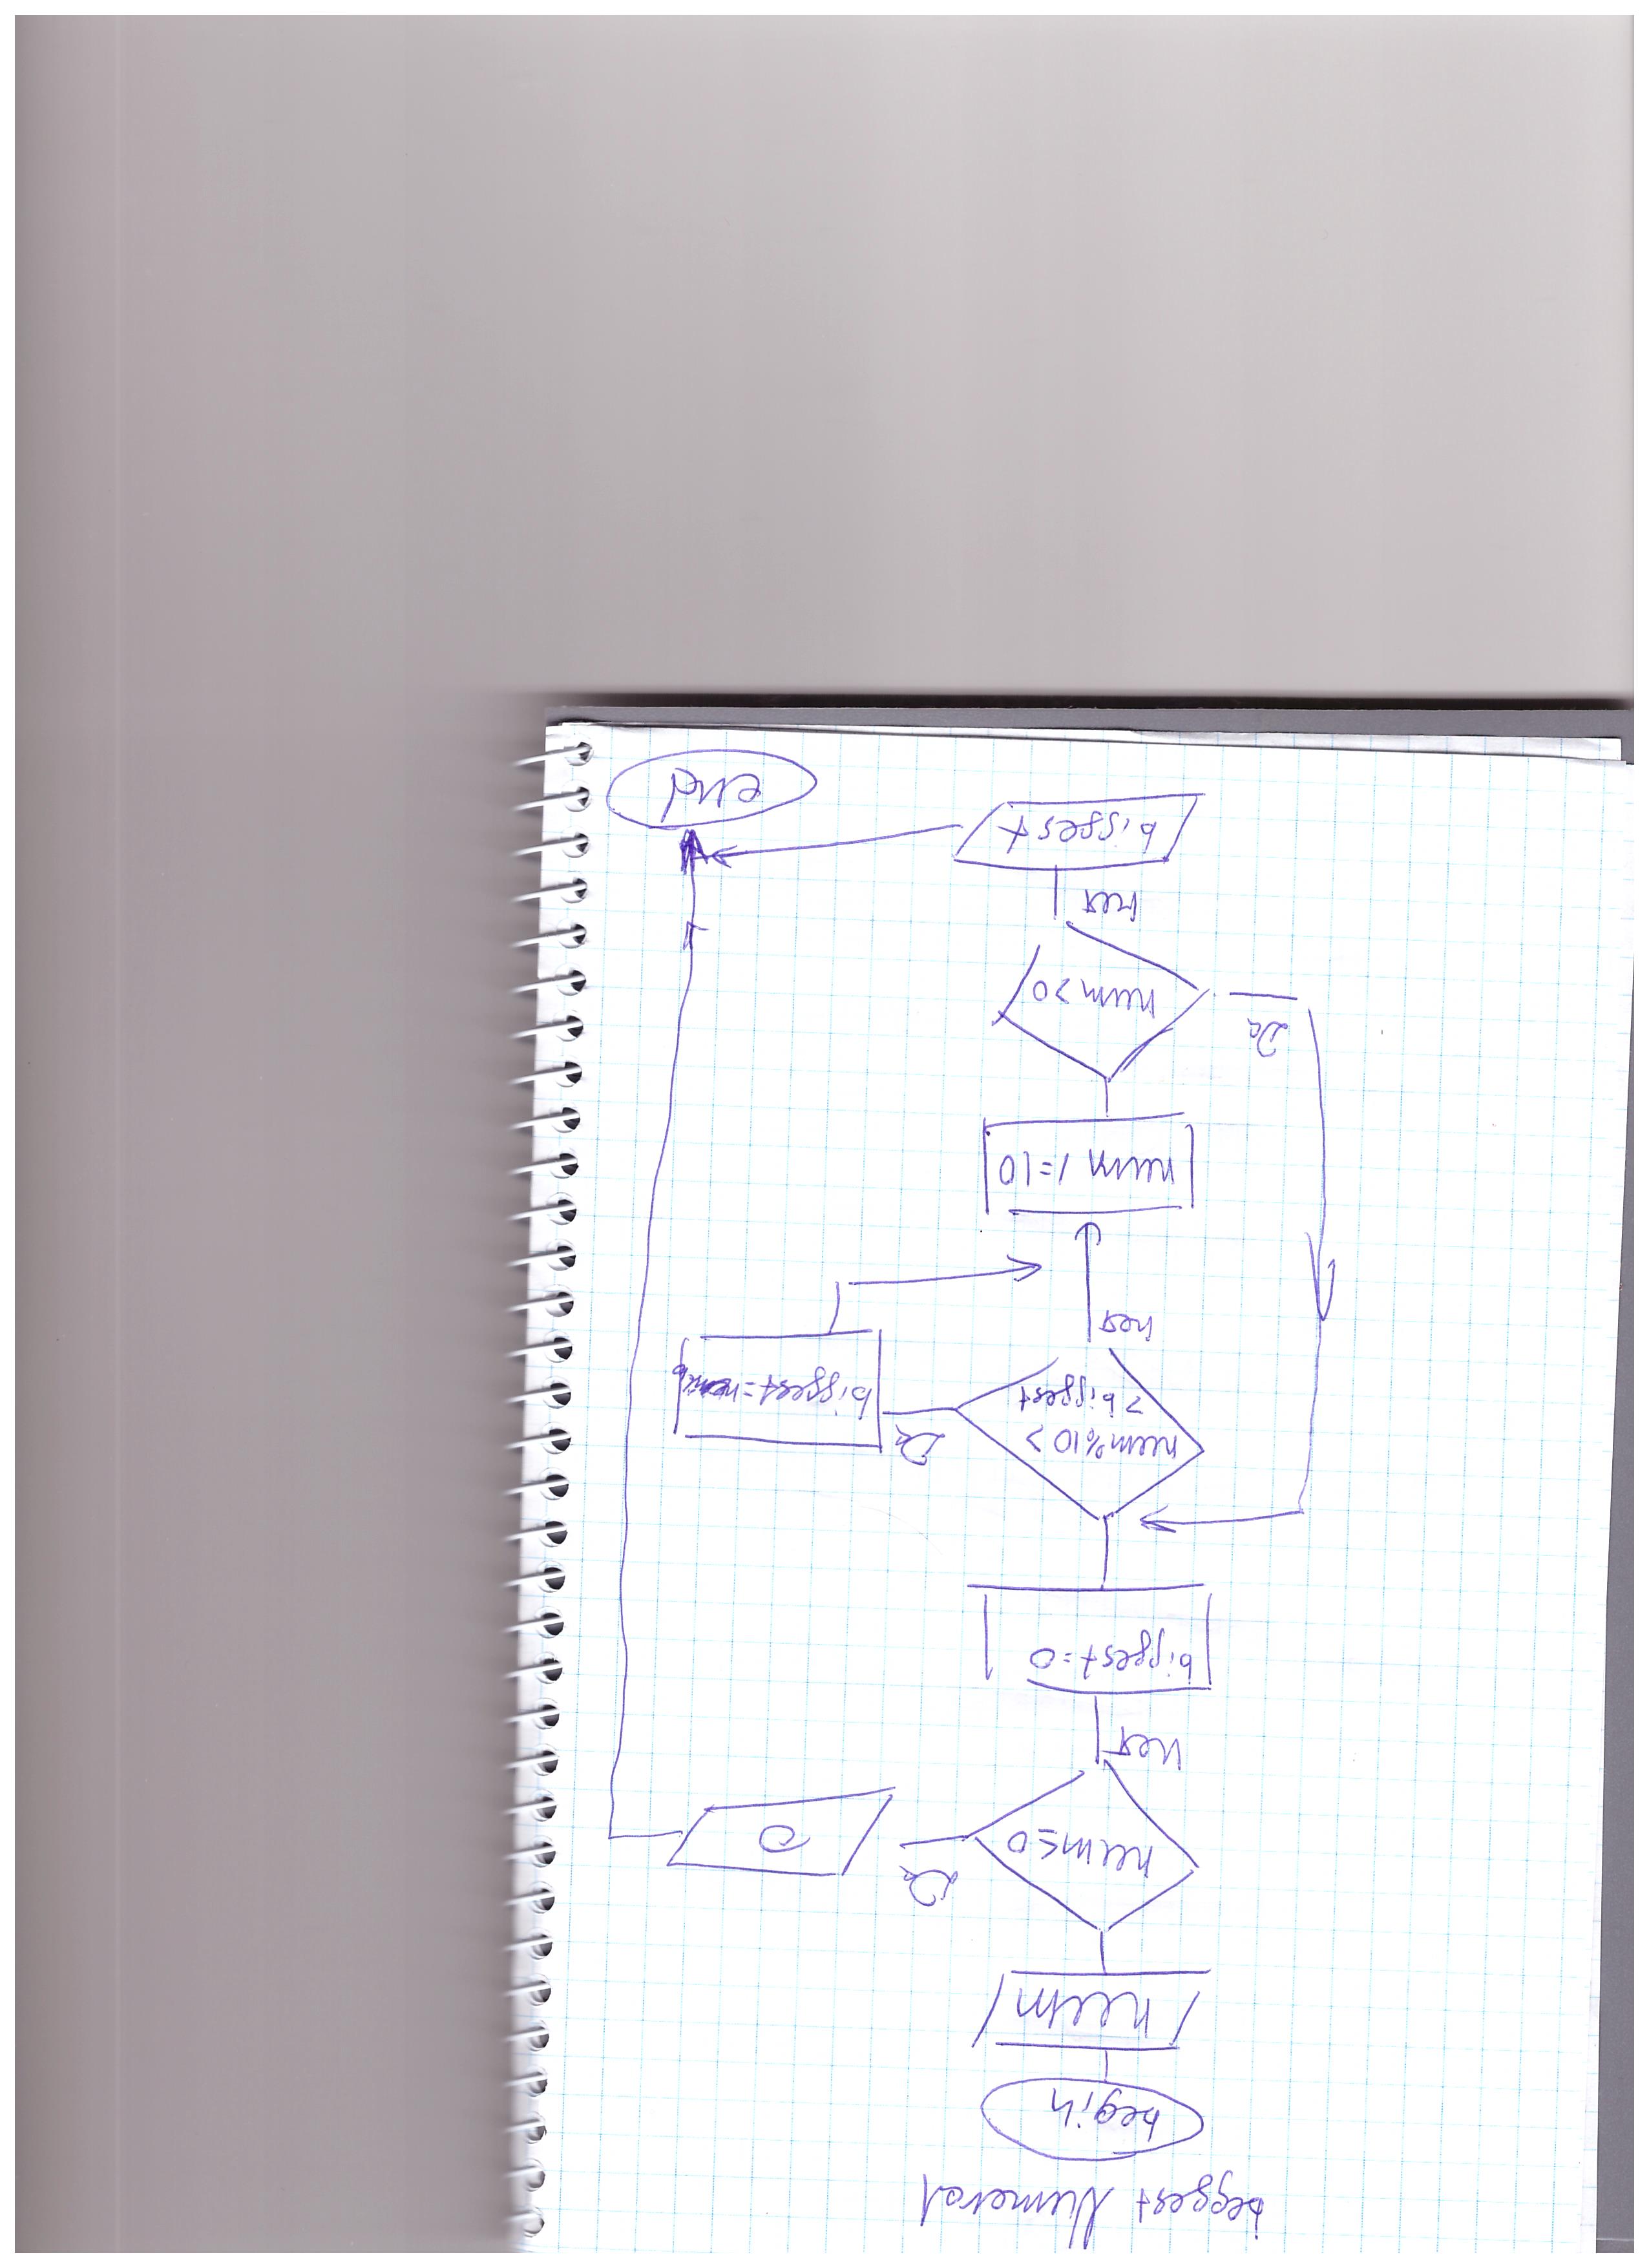 biggest Numeral
begin
num
num≤0
да
0
нет
biggest=0
num%10>
>biggest
да
нет
num /=10
num>0
да
нет
biggest
end